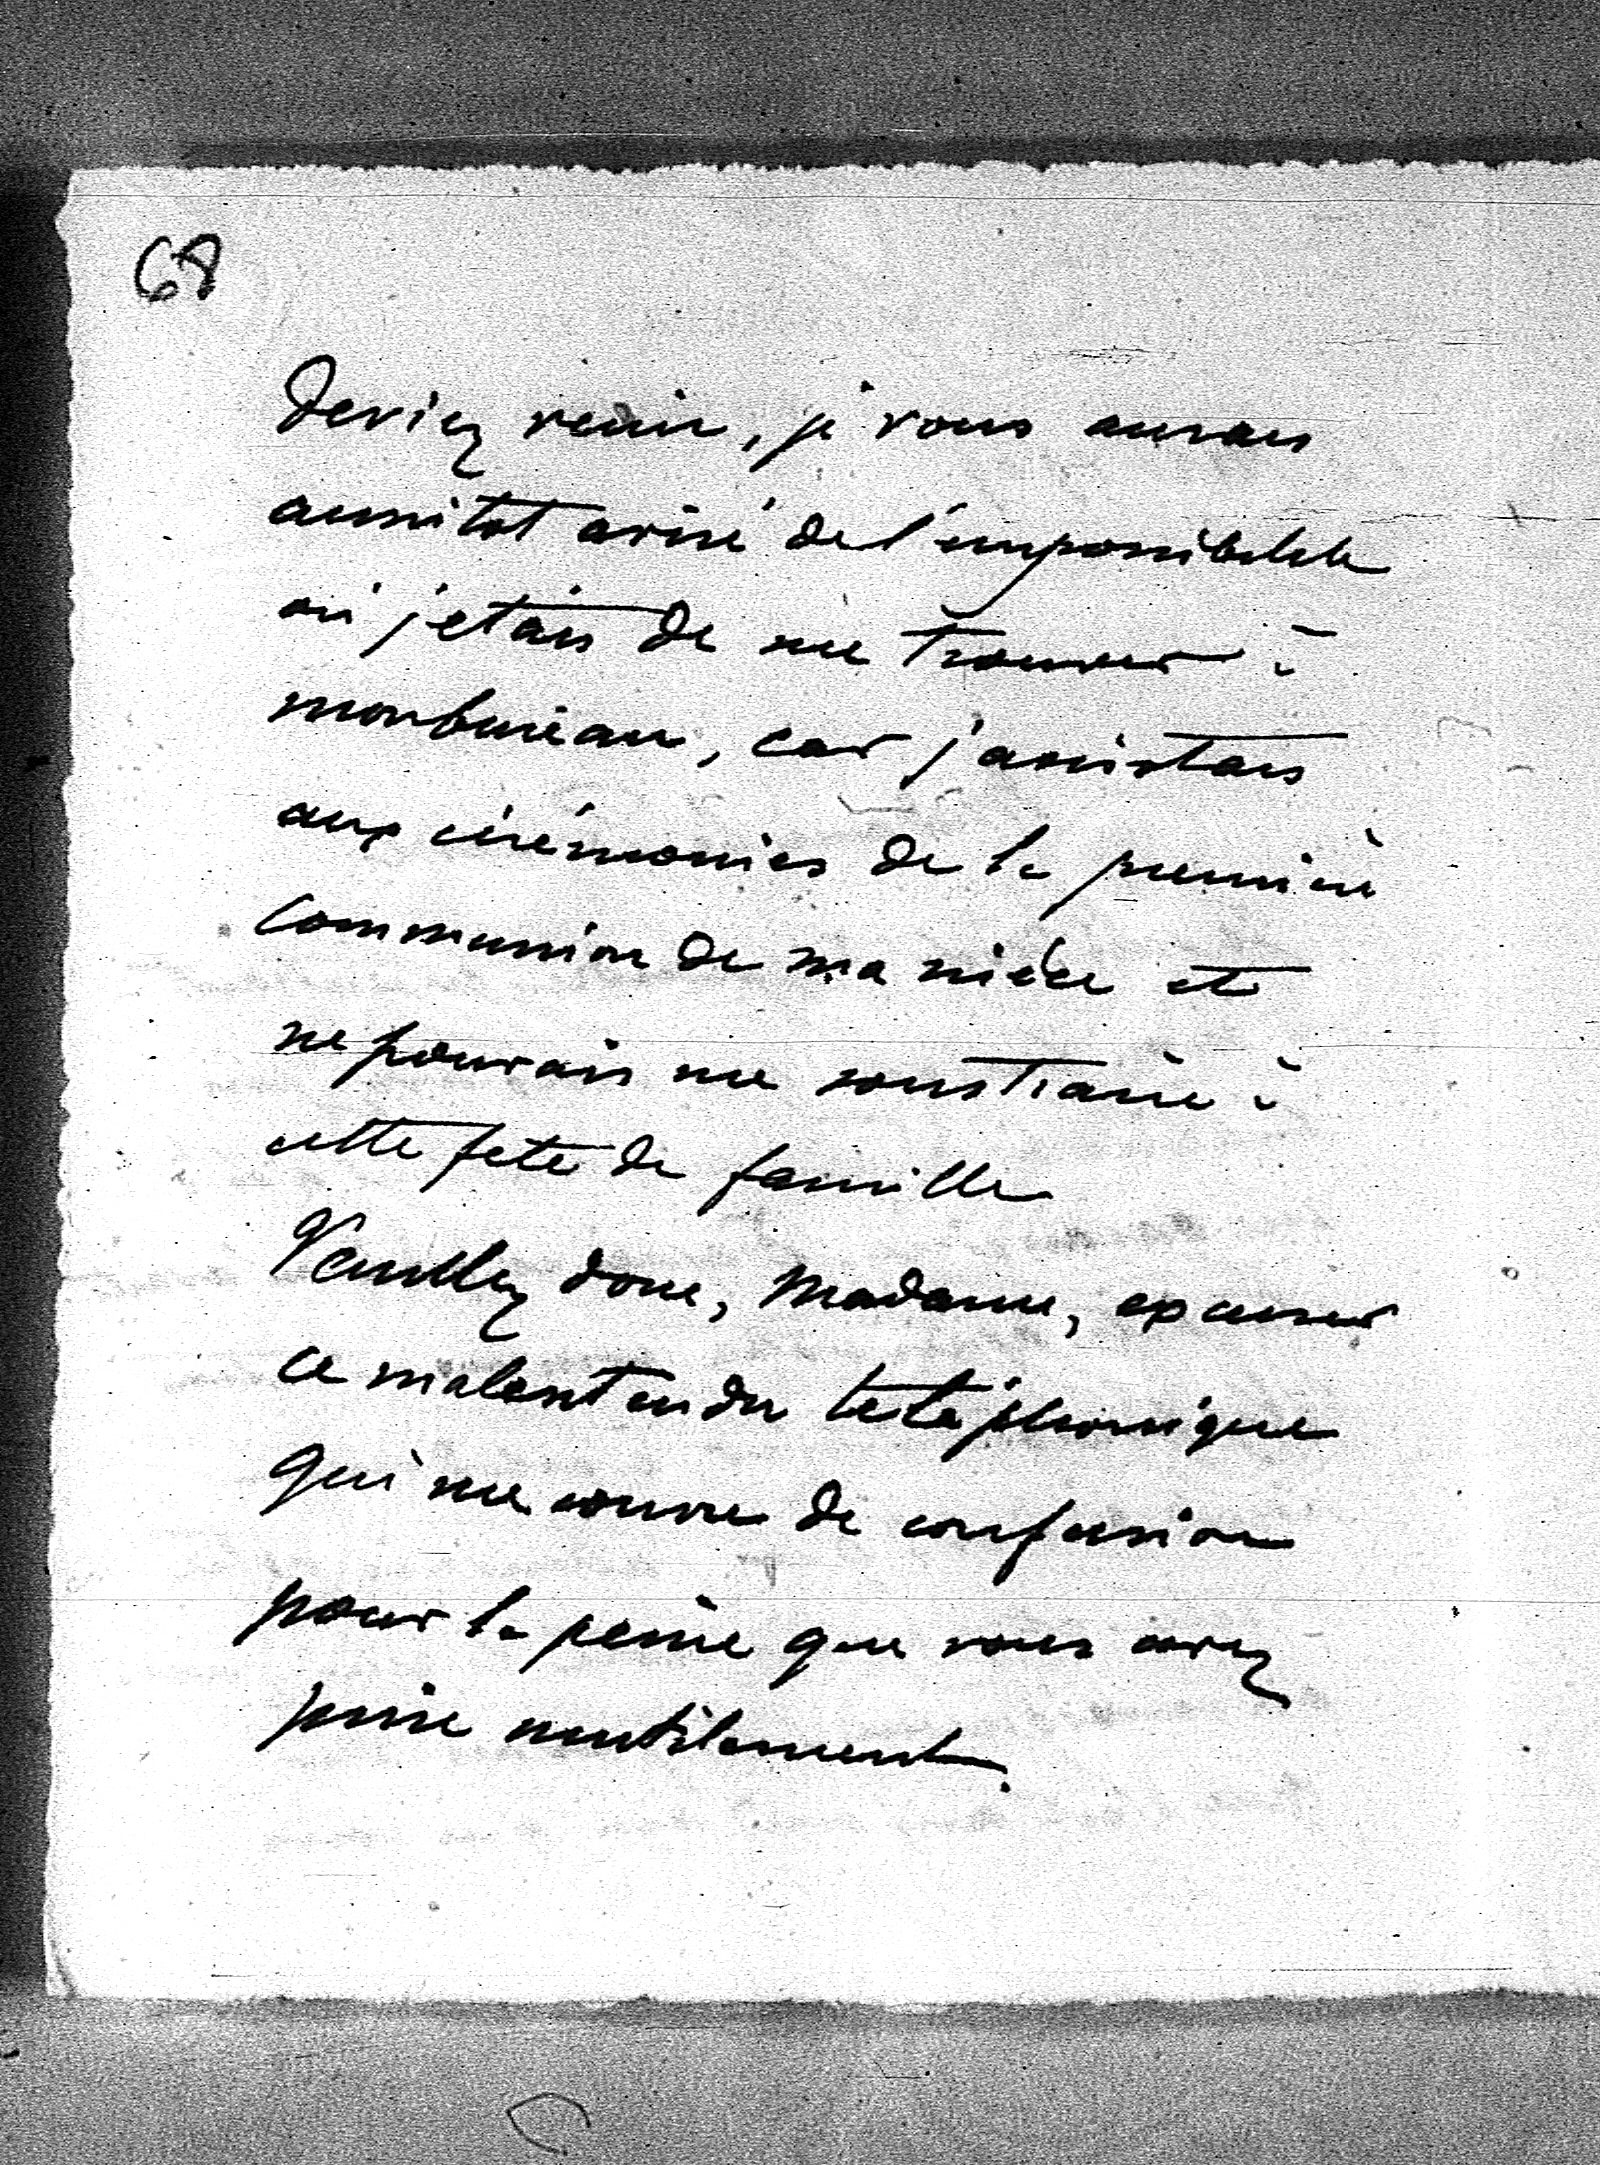 68
deviez venir, je vous aurais
aussitot avisé de l'impossibilite
où j'etais de me trouver à
mon bureau, car j'assistais
aux cérémonies de la première
communion de ma nièce et
ne pouvais me soustraire à
cette fete de famille
Veuillez donc, Madame, excuser
ce malentendu teléphonique
qui me couvre de confusion
pour la peine que vous avez
prise inutilement.